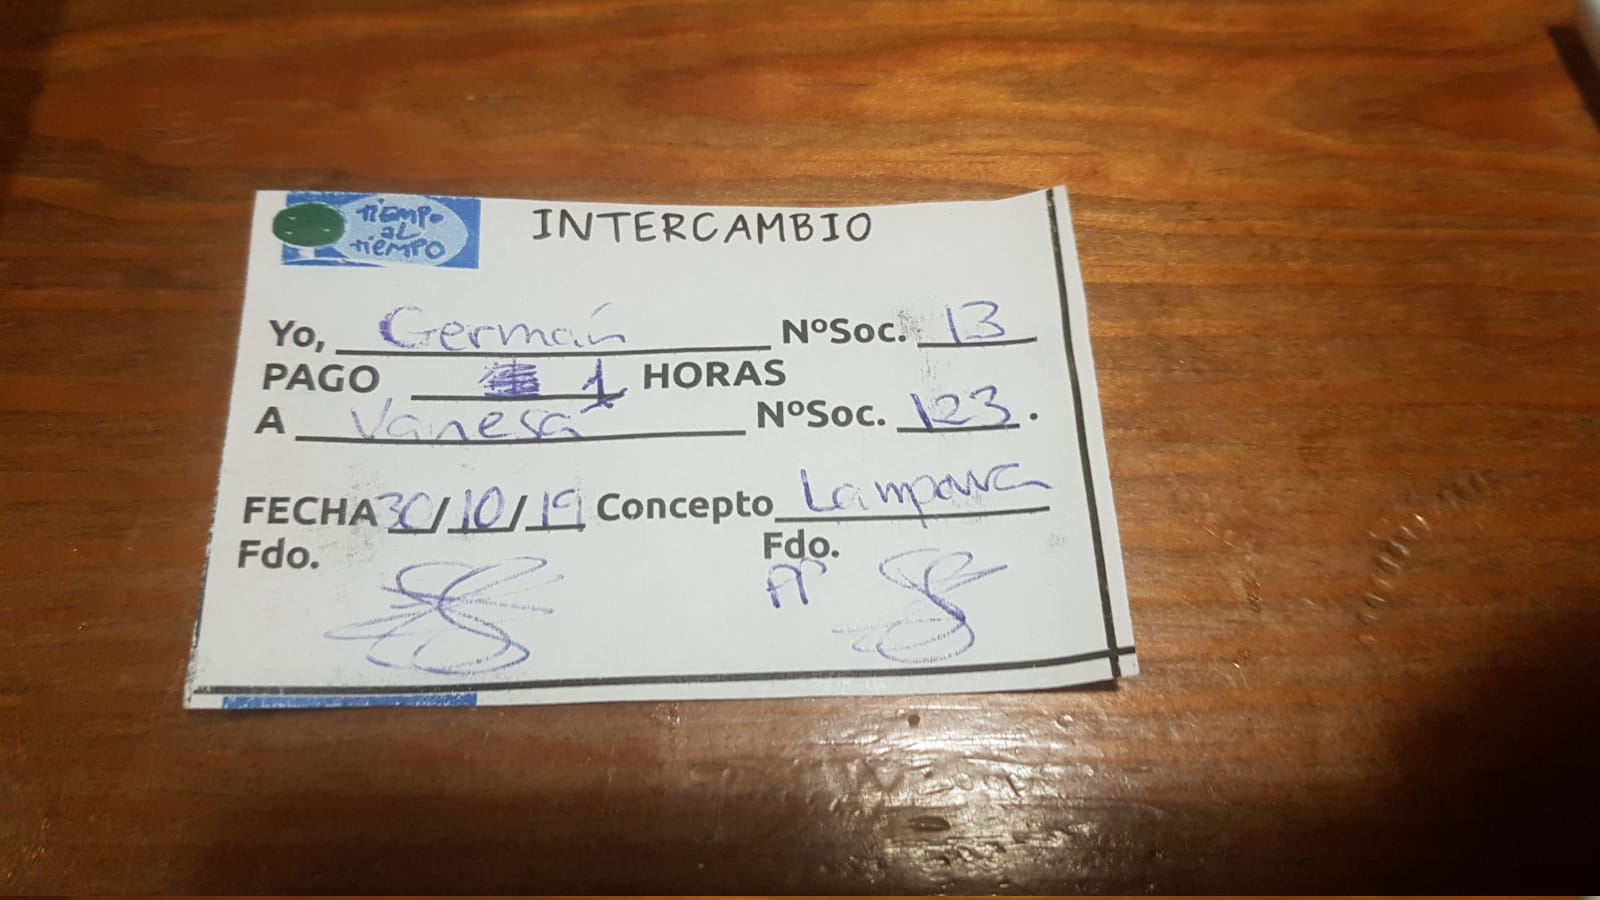 tiempo
al
tiempo
INTERCAMBIO
Yo, Germán NºSoc. 13
PAGO 1 HORAS
A Vanesa NºSoc. 123.
FECHA 30/10/19 Concepto Lampara
Fdo. Fdo.
PP